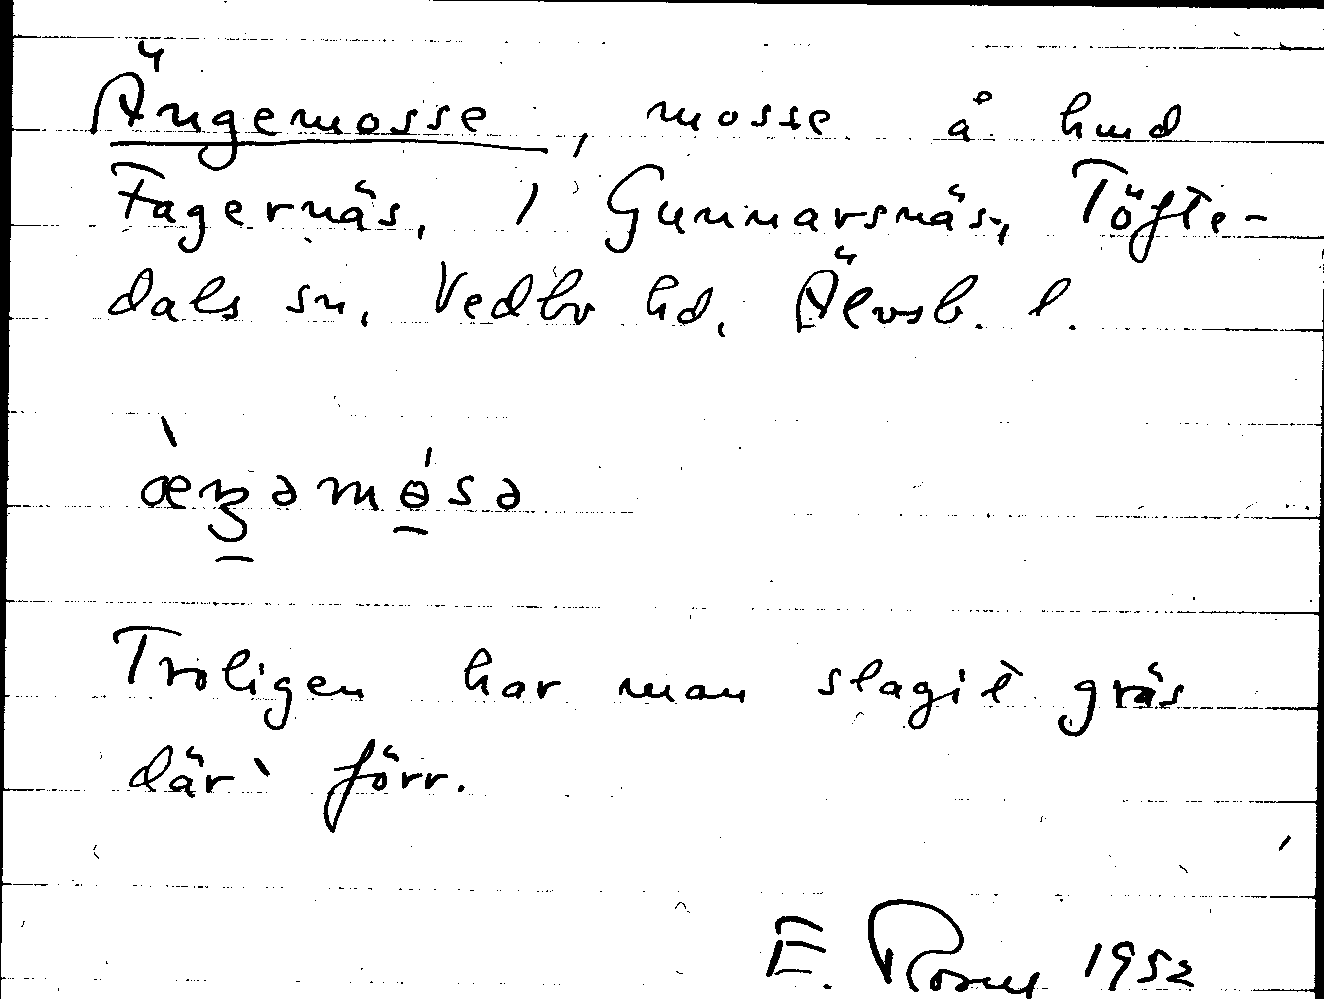 Ängemosse, mosse å hmd
Fagernäs, i Gunnarsnäs, Töfte-
dals sn, Vedbo hd, Älvsb. l.
æ̀ȵgəmɵ́sə
Troligen har man slagit gräs
där förr.
E. 1952